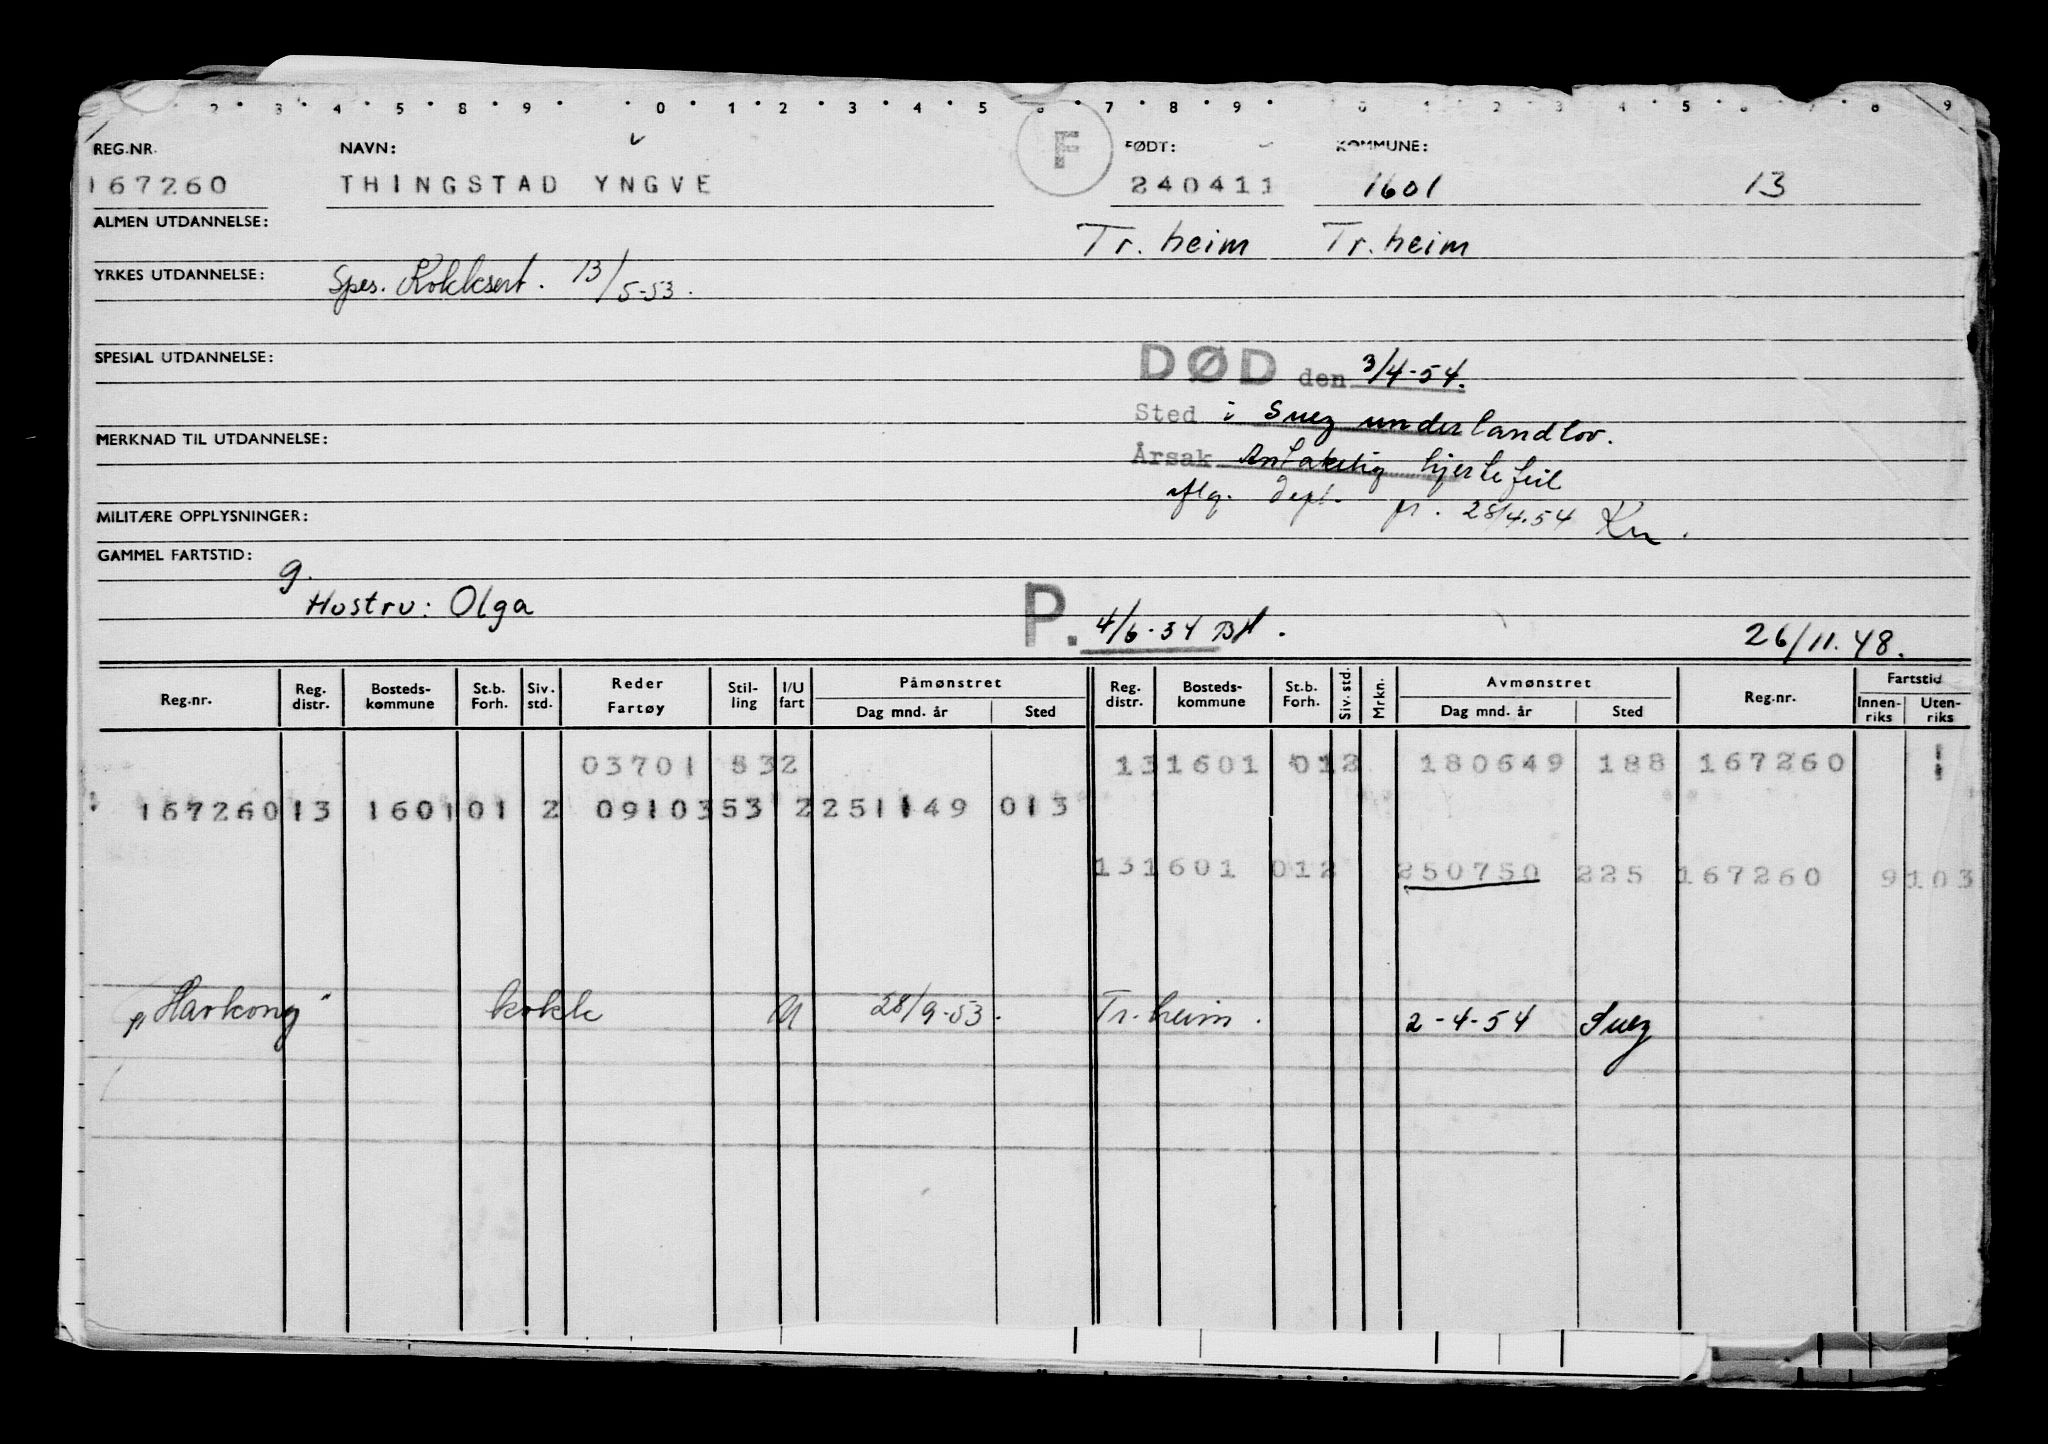 2 3 4 5 8 9 0 1 2 3 4 5 6 7 8 9 0 1 2 3 4 5 6 7 8 9
REG.NR. NAVN: F FØDT: KOMMUNE:
167260 THINGSTAD YNGVE 240411 1601 13
ALMEN UTDANNELSE: Tr.heim Tr.heim
YRKES UTDANNELSE: Spes. Kokksert. 13/5-53.
SPESIAL UTDANNELSE: DØD den 3/4-54.
Sted i Suez under landlov.
MERKNAD TIL UTDANNELSE:
Årsak Antakelig hjertefeil
iflg. Dept. pr. 28/4.54 Kn.
MILITÆRE OPPLYSNINGER:
GAMMEL FARTSTID:
g.
Hustru: Olga P. 4/6-54 BH. 26/11.48.
Reg.nr. Reg. distr. Bosteds- kommune St.b. Forh. Siv. std. Reder Fartøy Stil- ling I/U fart Påmønstret Dag mnd. år Sted Reg. distr. Bosteds- kommune St.b. Forh. Siv. std. Mrkn. Avmønstret Dag mnd. år Sted Reg.nr. Fartstid Innen- riks Uten- riks
03701 532 131601 012 180649 188 167260
167260 13 1601 01 2 09103 53 2 251149 013
131601 012 250750 225 167260 9103
"Havkong" kokk U 28/9-53. Tr.heim. 2-4-54 Suez